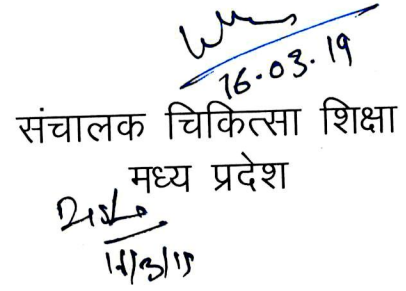 16.03.19
संचालक चिकित्सा शिक्षा
मध्य प्रदेश